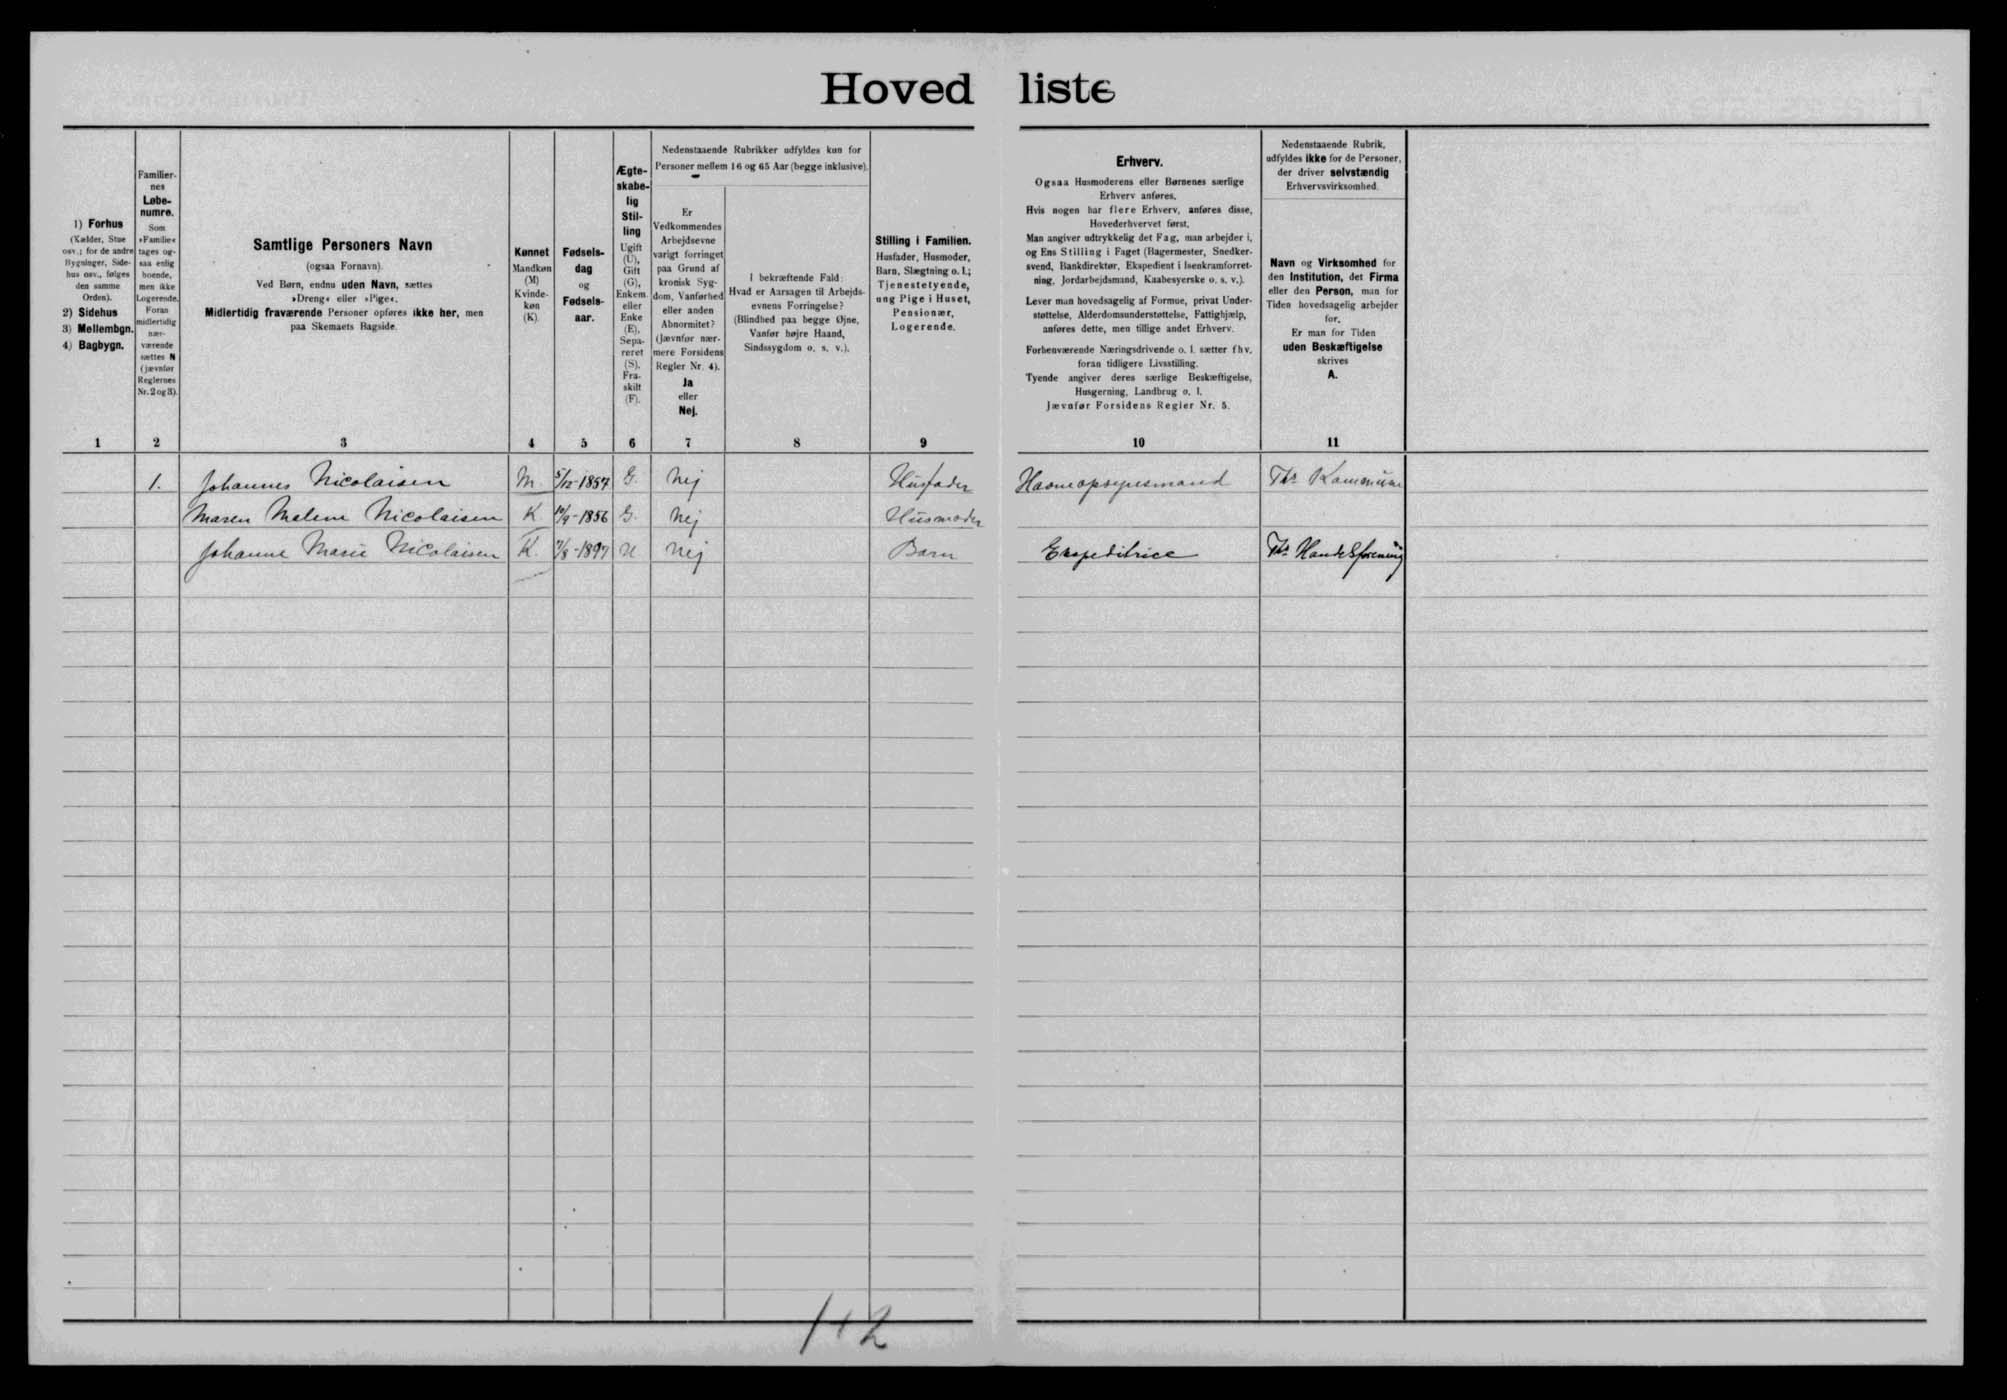 Hovedliste
1) Forhus
(Kælder, Stue
osv.; for de andre
Bygninger, Side-
hus osv., følges
den samme
Orden).
2) Sidehus
3) Mellembgn.
4) Bagbygn.
Familier-
nes
Løbe-
numre.
Som
»Familie«
tages og-
saa enlig
boende,
men ikke
Logerende.
Foran
midlertidig
nær-
værende
sættes N
(jævnfør
Reglernes
Nr. 2 og 3).
Samtlige Personers Navn
(ogsaa Fornavn).
Ved Børn, endnu uden Navn, sættes
»Dreng« eller »Pige«.
Midlertidig fraværende Personer opføres ikke her, men
paa Skemaets Bagside.
Kønnet
Mandkøn
(M)
Kvinde-
køn
(K).
Fødsels-
dag
og
Fødsels-
aar.
Ægte-
skabe-
lig
Stil-
ling
Ugift
(U),
Gift
(G),
Enkem.
eller
Enke
(E),
Sepa-
reret
(S),
Fra-
skilt
(F).
Nedenstaaende Rubrikker udfyldes kun for
Personer mellem 16 og 65 Aar (begge inklusive).
Er
Vedkommendes
Arbejdsevne
varigt forringet
paa Grund af
kronisk Syg-
dom, Vanførhed
eller anden
Abnormitet?
(Jævnfør nær-
mere Forsidens
Regler Nr. 4).
Ja
eller
Nej.
I bekræftende Fald:
Hvad er Aarsagen til Arbejds-
evnens Forringelse?
(Blindhed paa begge Øjne,
Vanfør højre Haand,
Sindssygdom o. s. v.).
Stilling i Familien.
Husfader, Husmoder,
Barn, Slægtning o. l.;
Tjenestetyende,
ung Pige i Huset,
Pensionær,
Logerende.
Erhverv.
Ogsaa Husmoderens eller Børnenes særlige
Erhverv anføres.
Hvis nogen har flere Erhverv, anføres disse,
Hovederhvervet først.
Man angiver udtrykkelig det Fag, man arbejder i,
og Ens Stilling i Faget (Bagermester, Snedker-
svend, Bankdirektør, Ekspedient i Isenkramforret-
ning, Jordarbejdsmand, Kaabesyerske o. s. v.).
Lever man hovedsagelig af Formue, privat Under-
støttelse, Alderdomsunderstøttelse, Fattighjælp,
anføres dette, men tillige andet Erhverv.
Forhenværende Næringsdrivende o. l. sætter fhv.
foran tidligere Livsstilling.
Tyende angiver deres særlige Beskæftigelse,
Husgerning, Landbrug o. l.
Jævnfør Forsidens Regler Nr. 5.
Nedenstaaende Rubrik,
udfyldes ikke for de Personer,
der driver selvstændig
Erhvervsvirksomhed.
Navn og Virksomhed for
den Institution, det Firma
eller den Person, man for
Tiden hovedsagelig arbejder
for.
Er man for Tiden
uden Beskæftigelse
skrives
A.
1 2 3 4 5 6 7 8 9 10 11
1. Johannes Nicolaisen M. 5/12-1857 G. Nej Husfader Havneopsynsmand Ths Kommune
Maren Malene Nicolaisen K 10/9-1856 G. Nej Husmoder
Johanne Marie Nicolaisen K. 7/8-1897 U Nej Barn Expeditrice Ths Handelsforening
1+2